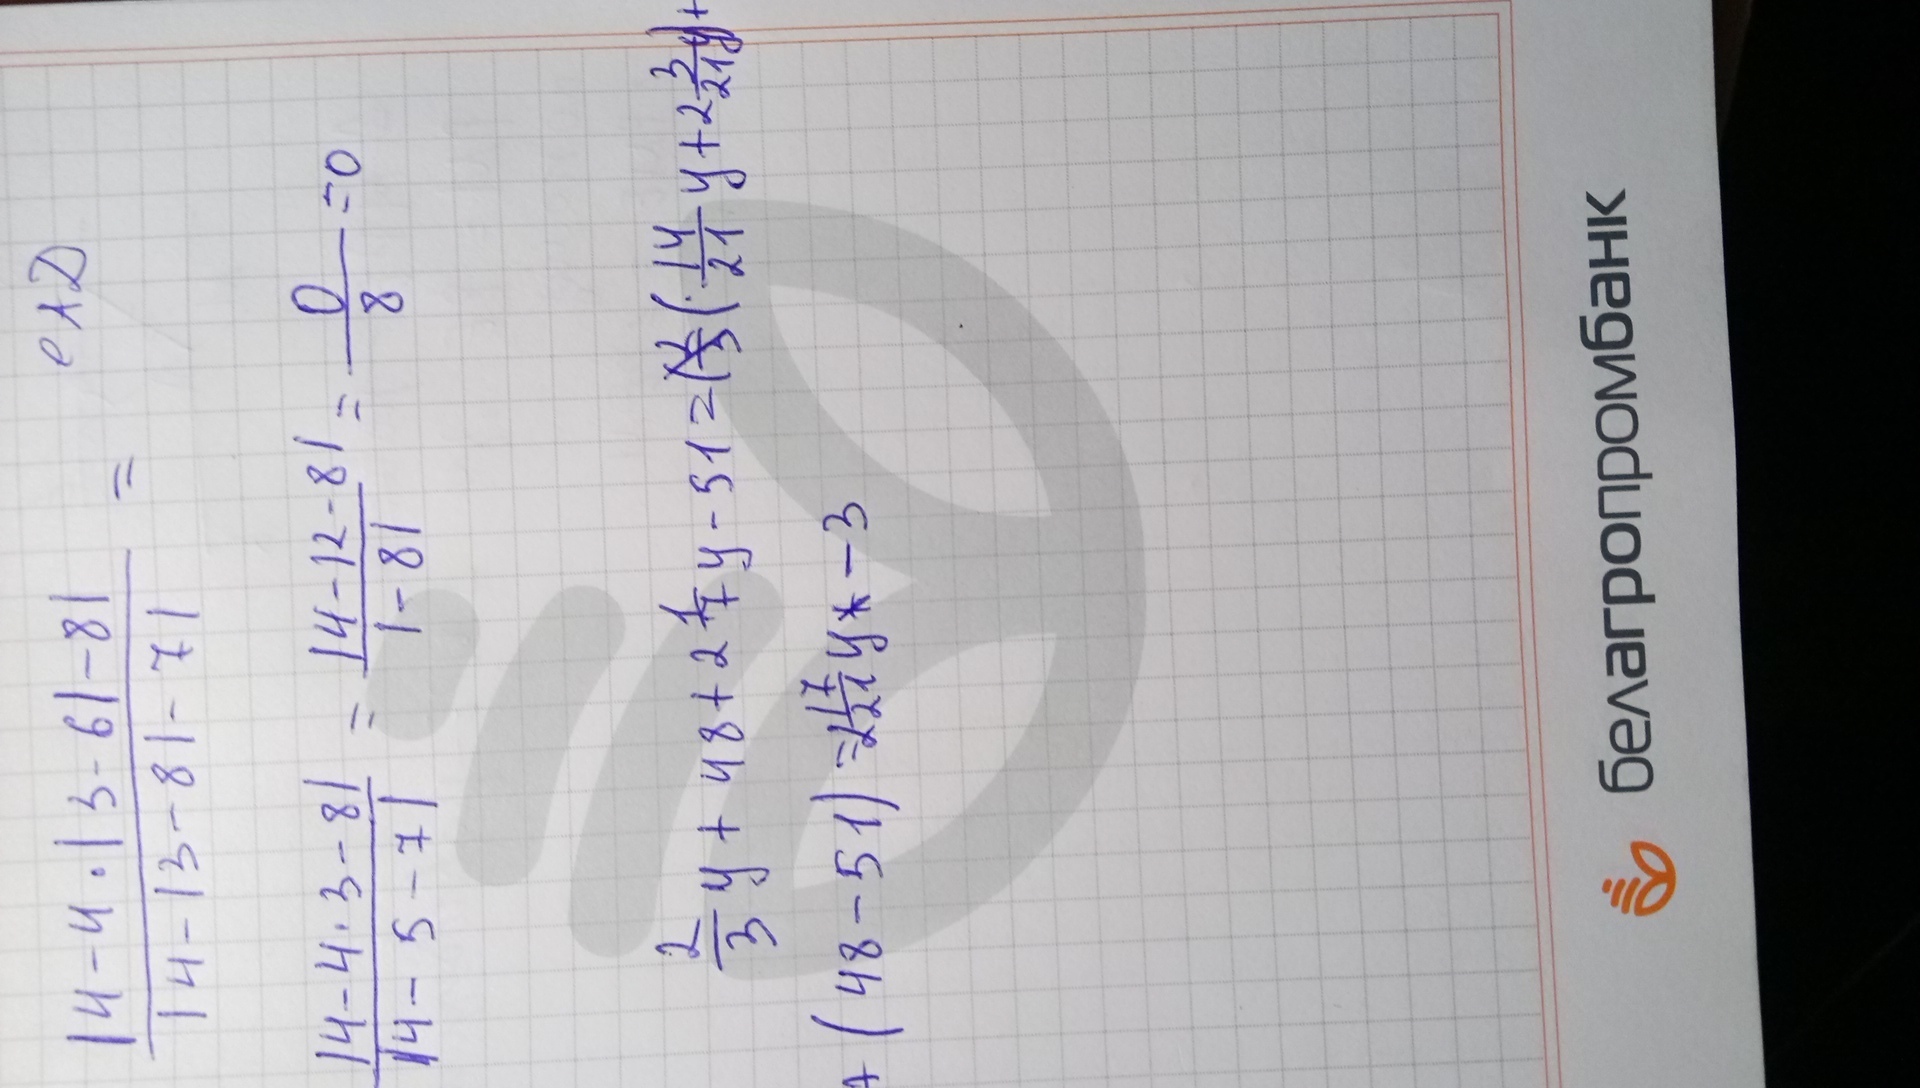 |4-4·|3-6|-8| =
|4-|3-8|-7|
|4-4·3-8| = |4-12-8| = 0 = 0
|4-5-7| |-8| 8
2/3 y + 48 + 2 1/7 y - 51 = (14/21 y + 2 3/21 y) +
+ (48 - 51) = 2 17/21 y - 3
белагропромбанк